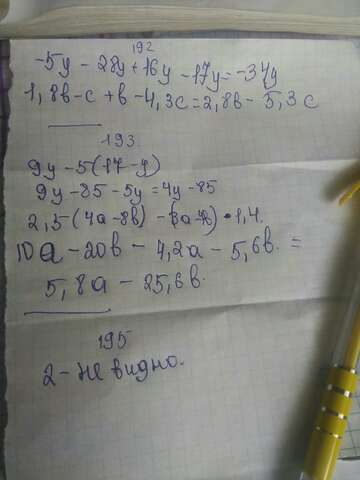 192
-5y - 28y + 16y - 17y = -34y
1,8в - с + в - 4,3с = 2,8в - 5,3с
193.
9y - 5(17 - y)
9y - 85 - 5y = 4y - 85
2,5(4а - 8в) - (3а - ) • 1,4.
10а - 20в - 4,2а - 5,6в. =
5,8а - 25,6в.
195
2 - не видно.